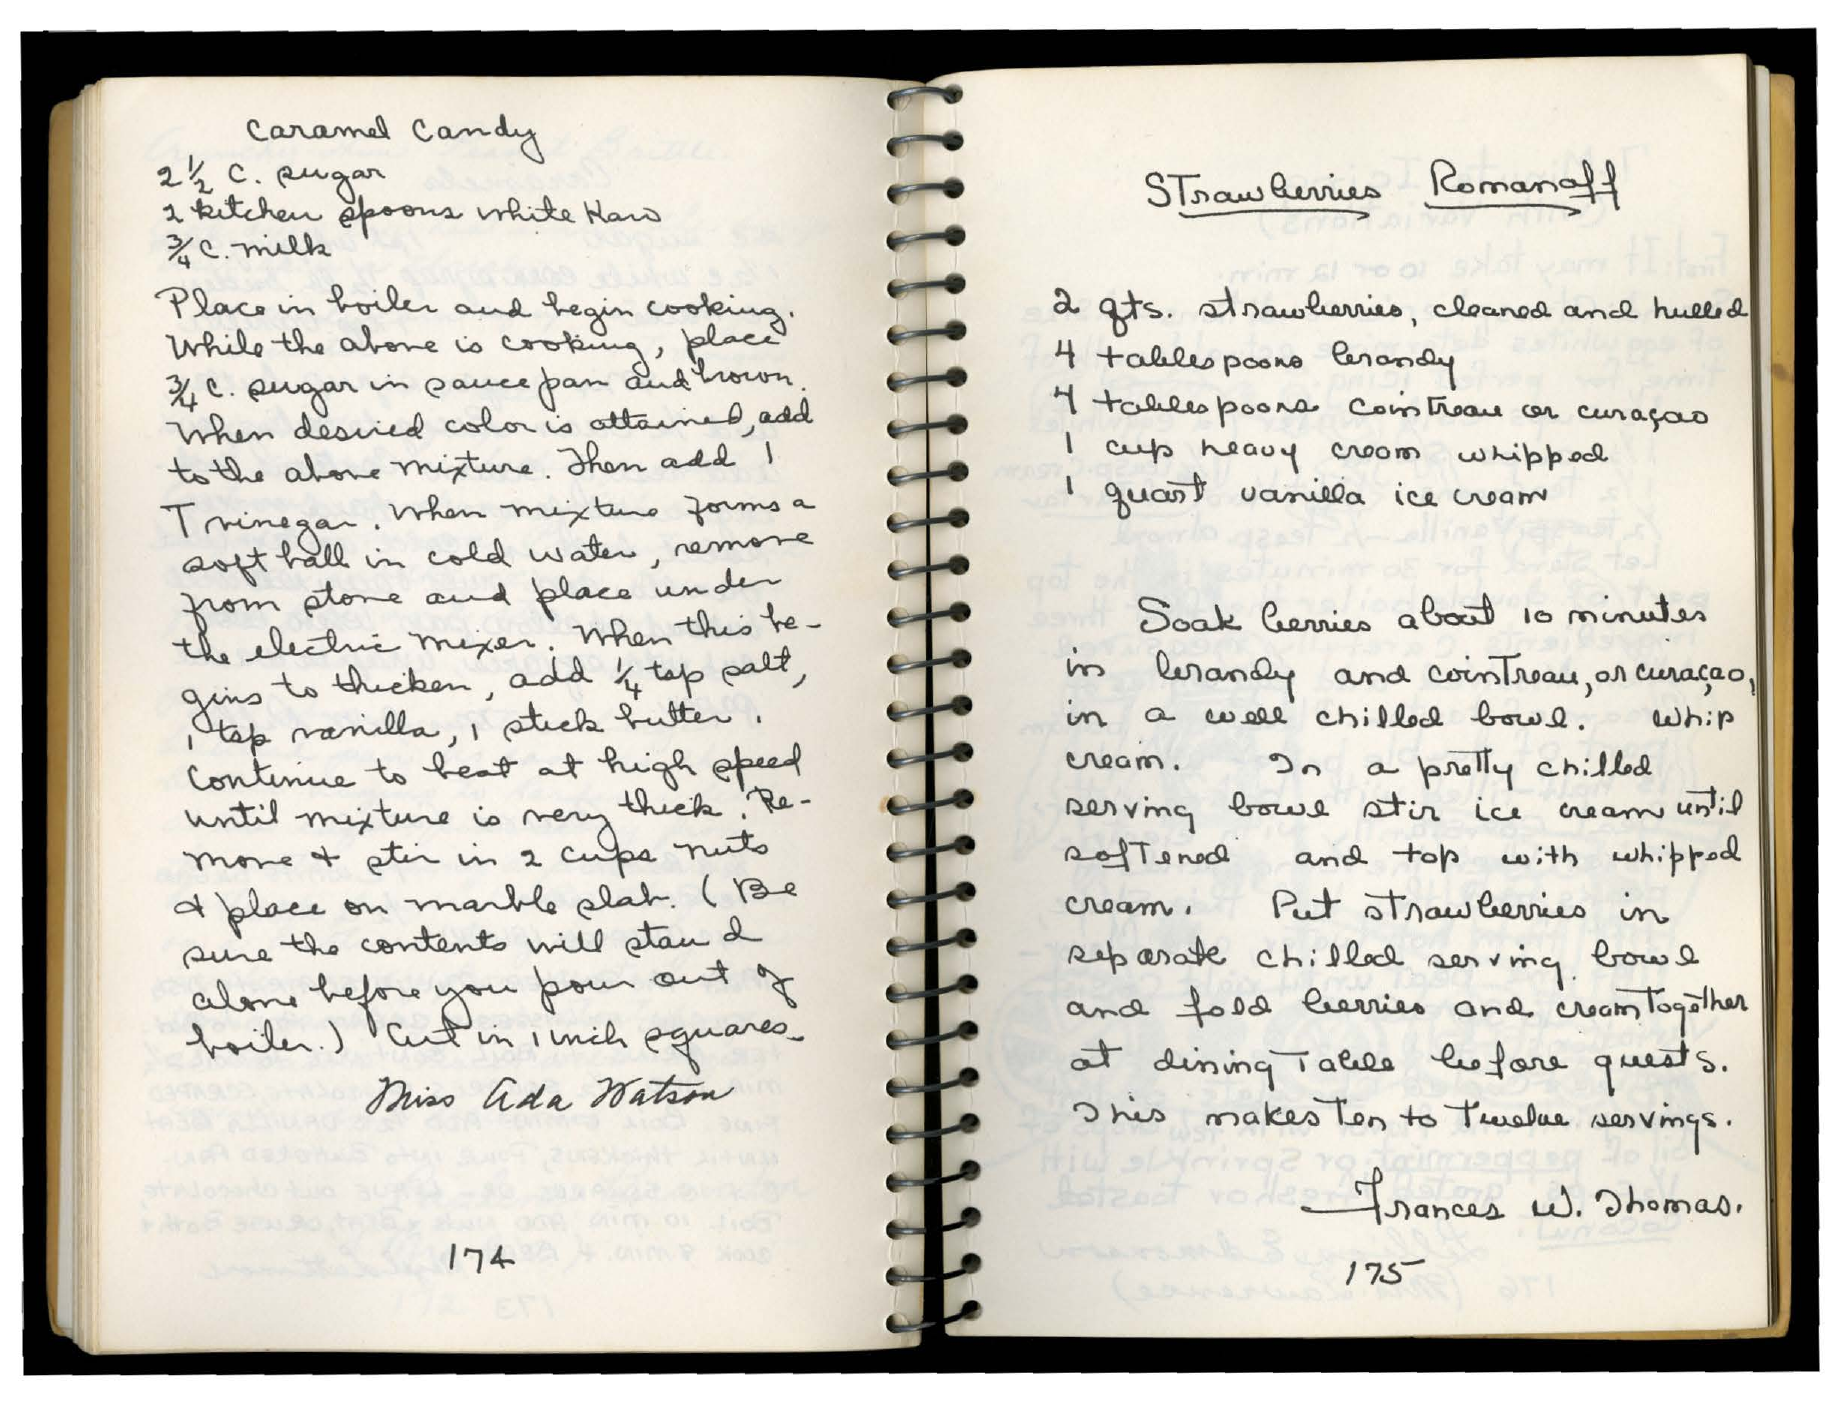 Caramel Candy
2 1/2 C. sugar
2 kitchen spoons white Karo
3/4 C. milk
Place in boiler and begin cooking.
While the above is cooking, place
3/4 C. sugar in sauce pan and brown.
When desired color is attained, add
to the above mixture. Then add 1
T vinegar. When mixture forms a
soft ball in cold water, remove
from stove and place under
the electric mixer. When this be-
gins to thicken, add 1/4 tsp salt,
1 tsp vanilla, 1 stick butter.
Continue to beat at high speed
until mixture is very thick. Re-
move + stir in 2 cups nuts
+ place on marble slab. (Be
sure the contents will stand
alone before you pour out of
boiler.) Cut in 1 inch squares.
Miss Ada Watson
174
Strawberries Romanoff
2 qts. strawberries, cleaned and hulled
4 tablespoons brandy
4 tablespoons cointreau or curaçao
1 cup heavy cream whipped
1 quart vanilla ice cream
Soak berries about 10 minutes
in brandy and cointreau, or curaçao,
in a well chilled bowl. Whip
cream. In a pretty chilled
serving bowl stir ice cream until
softened and top with whipped
cream. Put strawberries in
separate chilled serving bowl
and fold berries and cream together
at dining table before guests.
This makes ten to twelve servings.
Frances W. Thomas.
175